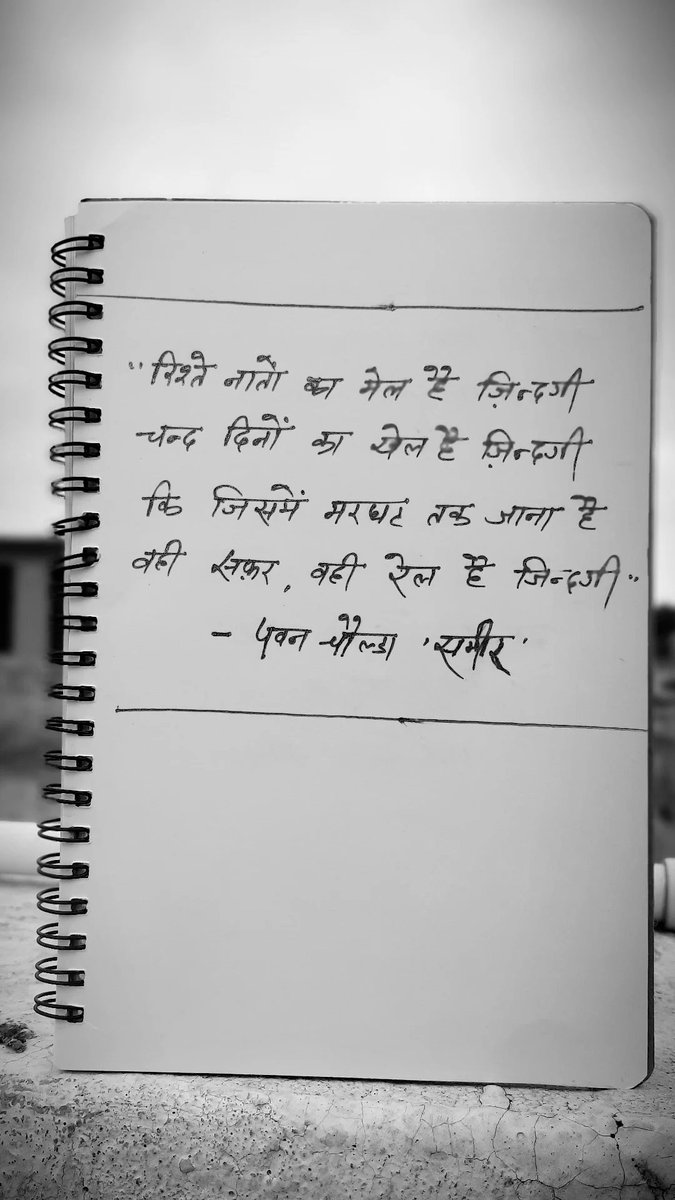 "रिश्ते नातों का मेल है ज़िन्दगी
चन्द दिनों का खेल है ज़िन्दगी
कि जिसमें मरघट तक जाना है
वही सफ़र, वही रेल है जिन्दगी"
- पवन चौल्डा 'समीर'